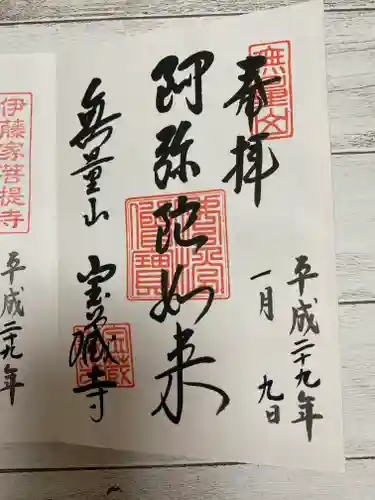 奉拝
無量山
平成二十九年
一月 九日
阿弥陀如来
無量山 宝蔵寺
伊藤家菩提寺
平成二十九年